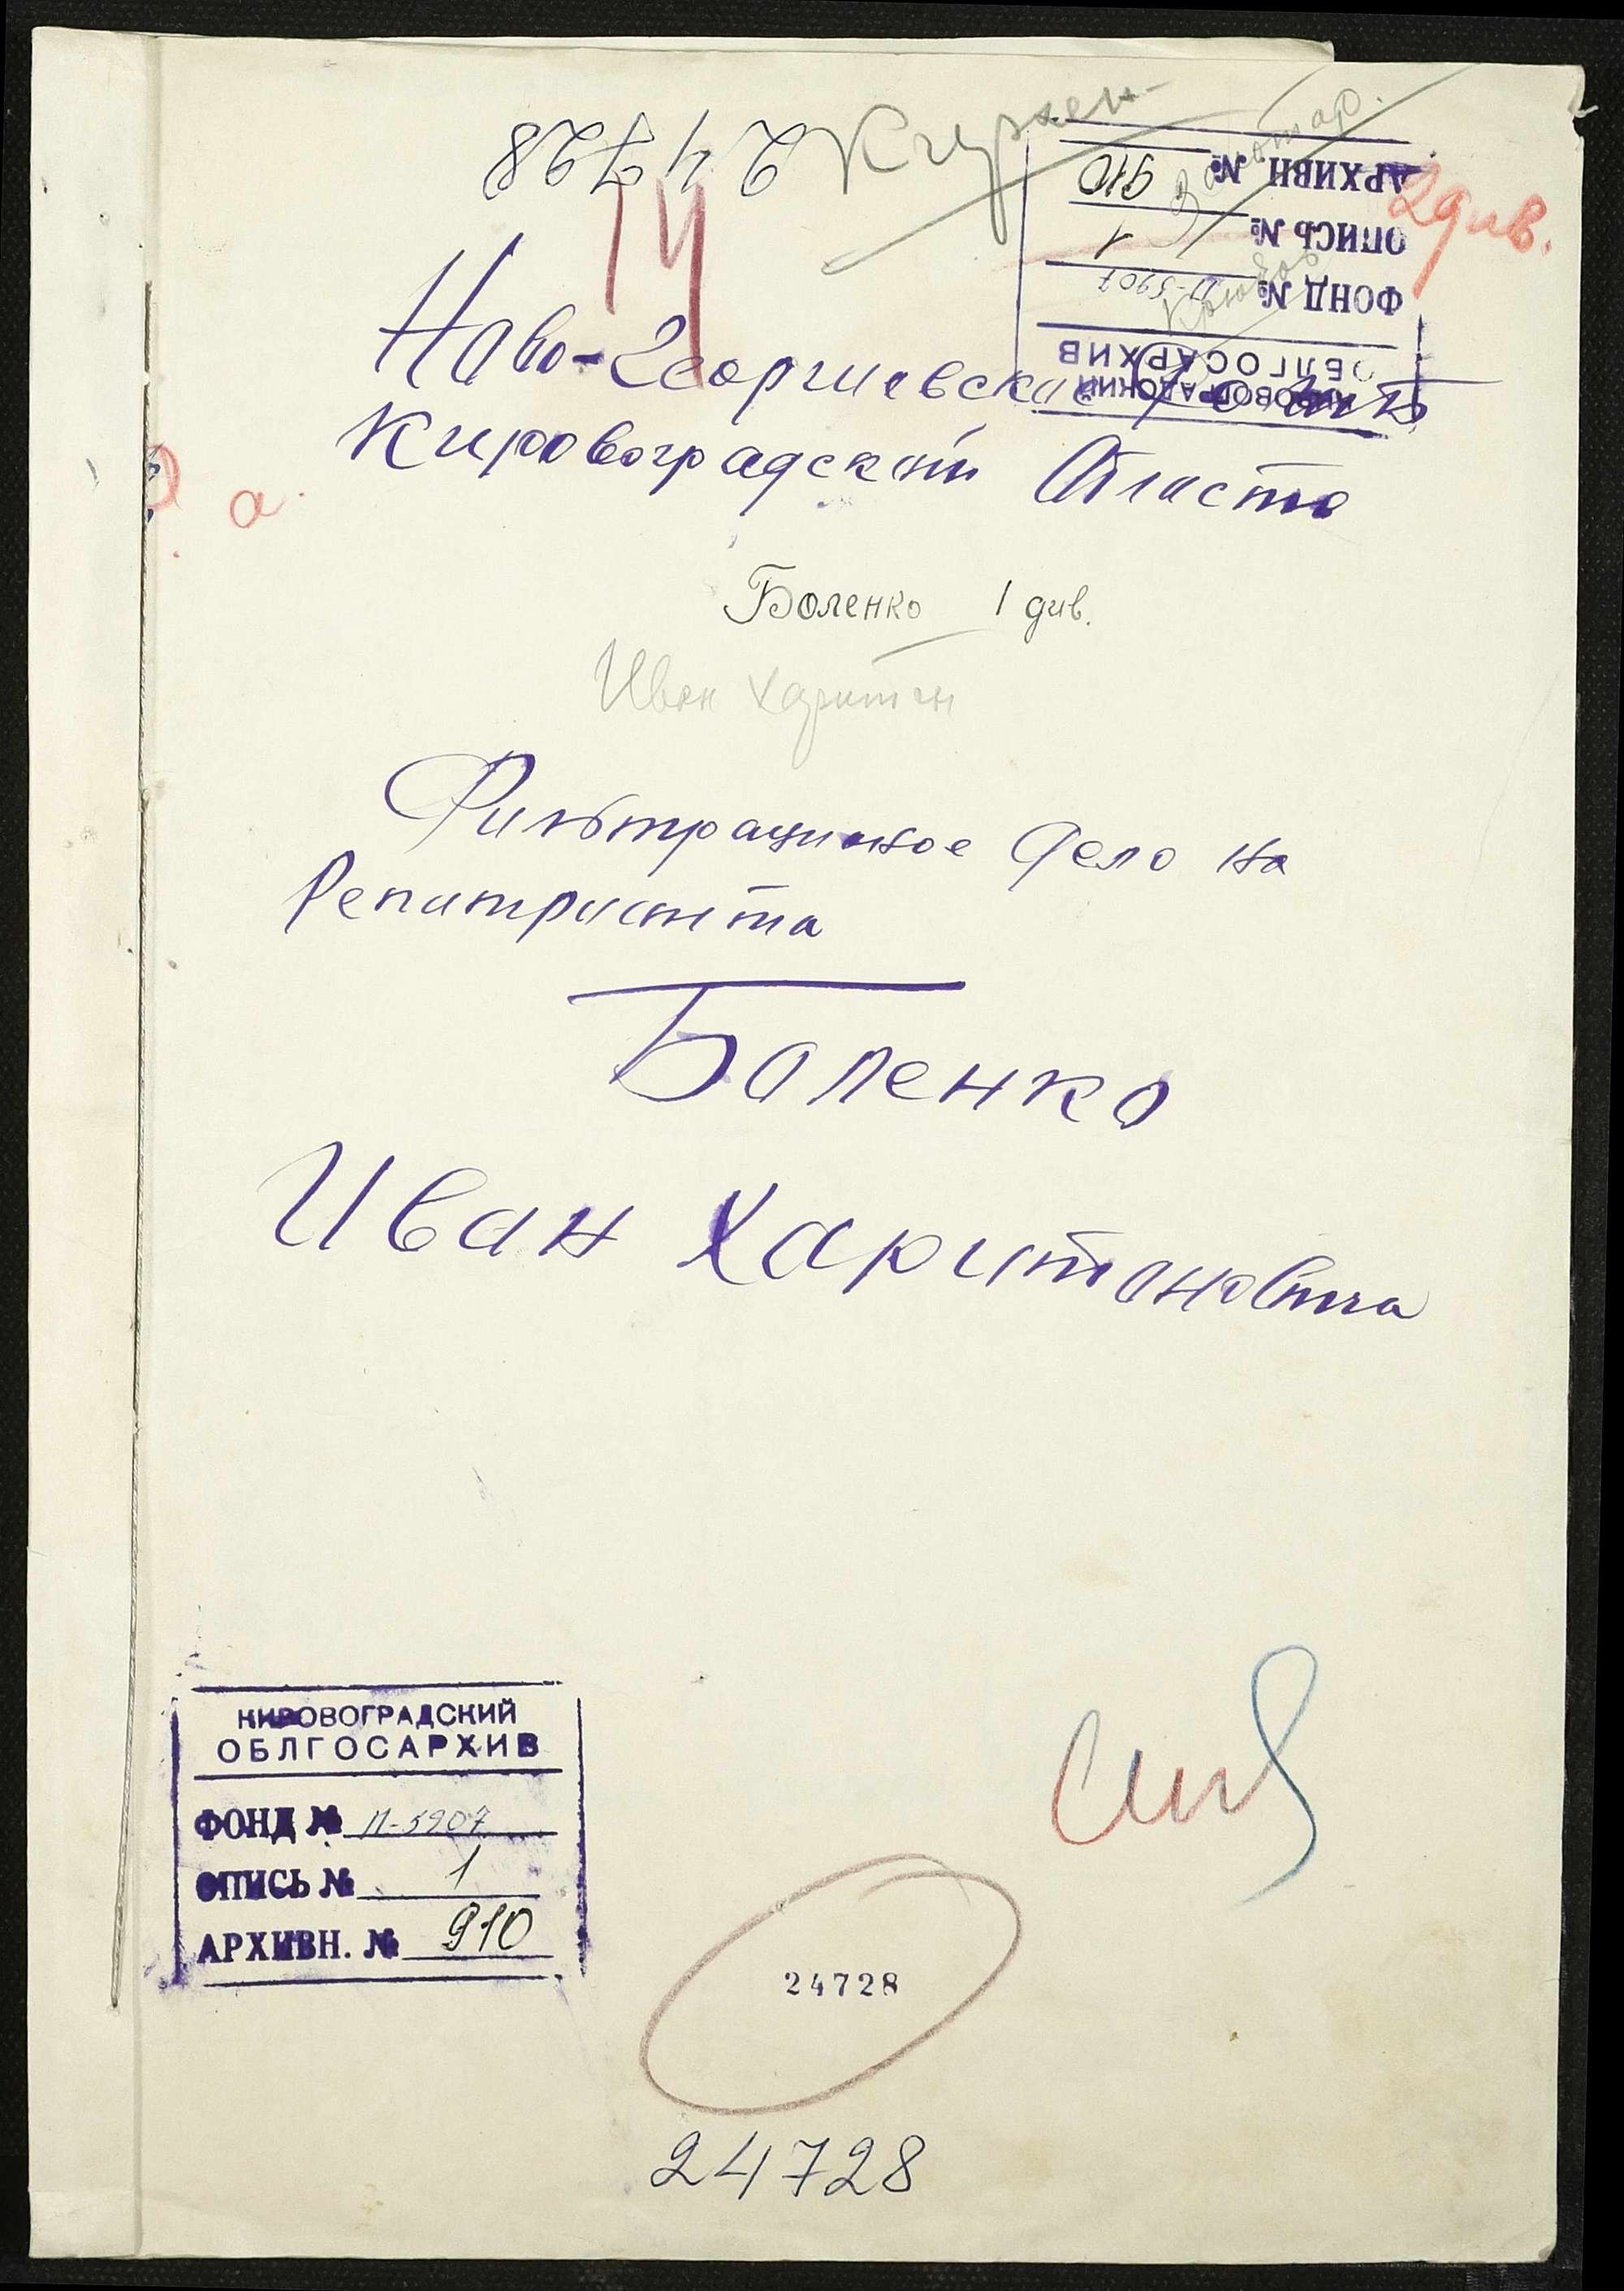 24728
АРХИВН №  910
ОПИСЬ №  1
ФОНД №  П-5907
ОБЛГОСАРХИВ
КИРОВОГРАДСКИЙ
2 див.
14
Ново-Георгиевский
Кировоградской Области
а
Боленко 1 див.
Иван Харитон
Фильтрационное Дело на
Репатрианта
Боленко
Иван Харитоновича
КИРОВОГРАДСКИЙ
ОБЛГОСАРХИВ
ФОНД № П-5907
ОПИСЬ № 1
АРХИВН. № 910
24728
24728